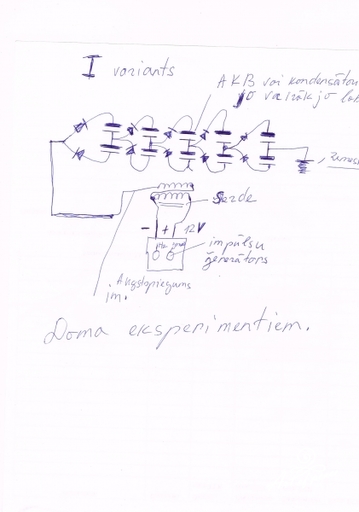 I variants
AKB vai kondensātor
jo vairāk jo lab
Zeme
Serde
- + 12V
impulsu
ģenerātors
Augstspriegums
Doma eksperimentiem.